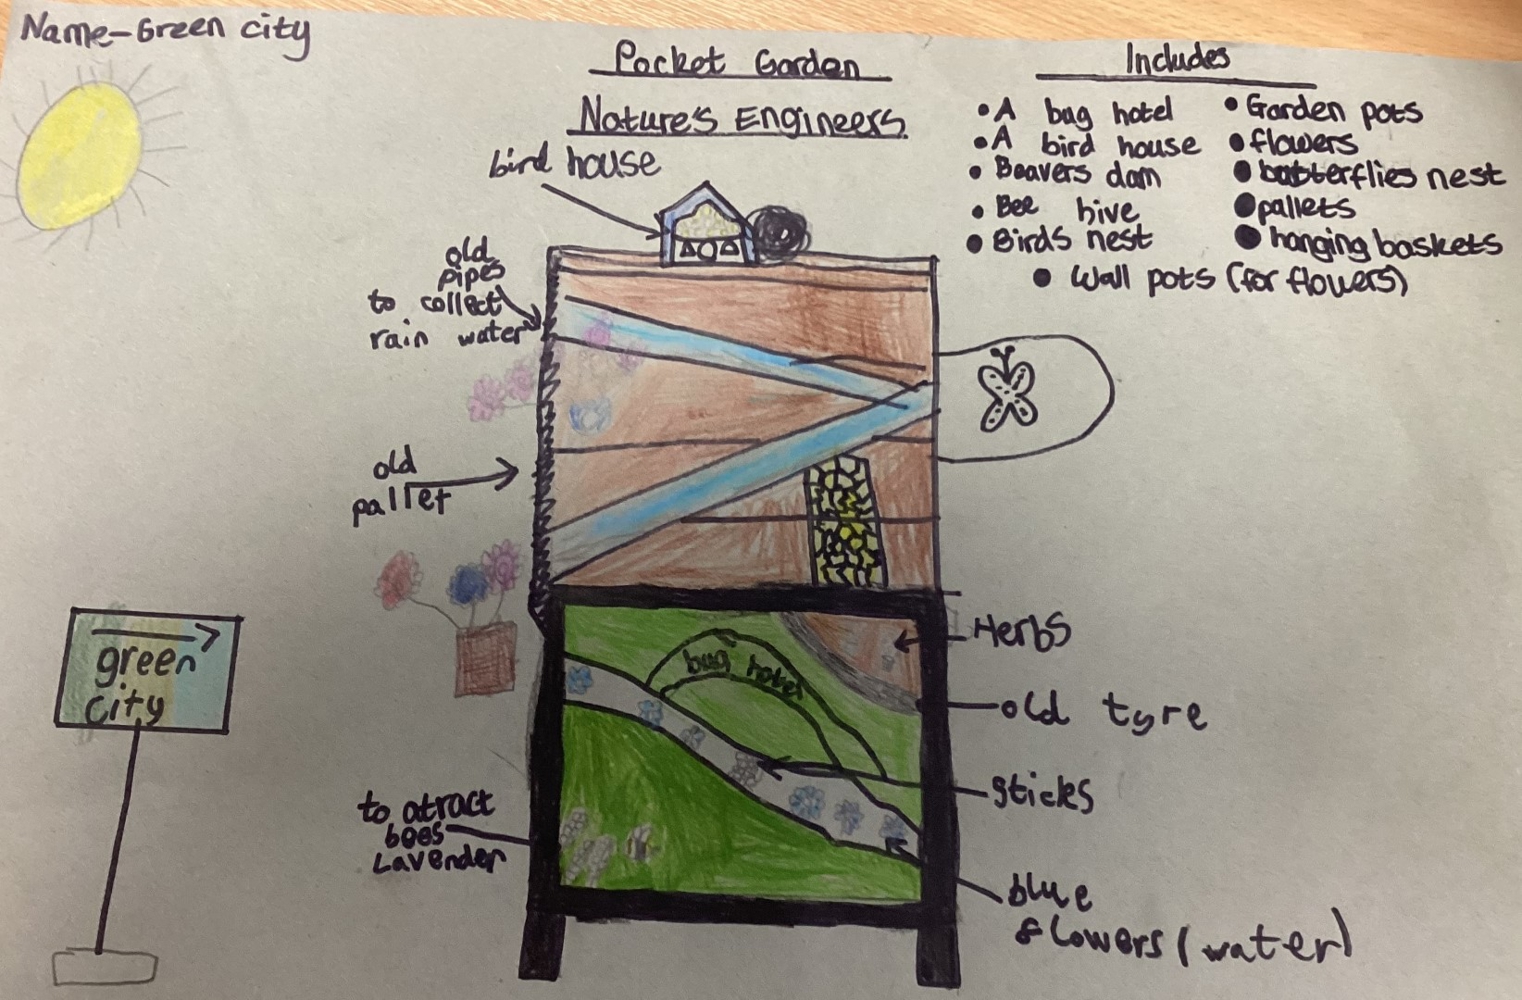 Name-Green city
Pocket Garden
Nature's Engineers
Includes
• A bug hotel
• A bird house
• Beavers dam
• Bee hive
• Birds nest
• Garden pots
• flowers
• butterflies nest
• pallets
• hanging baskets
• Wall pots (for flowers)
bird house
old
pipes
to collect
rain water
old
pallet
green
city
bug hotel
Herbs
old tyre
sticks
to atract
bees
Lavender
blue
flowers (water)